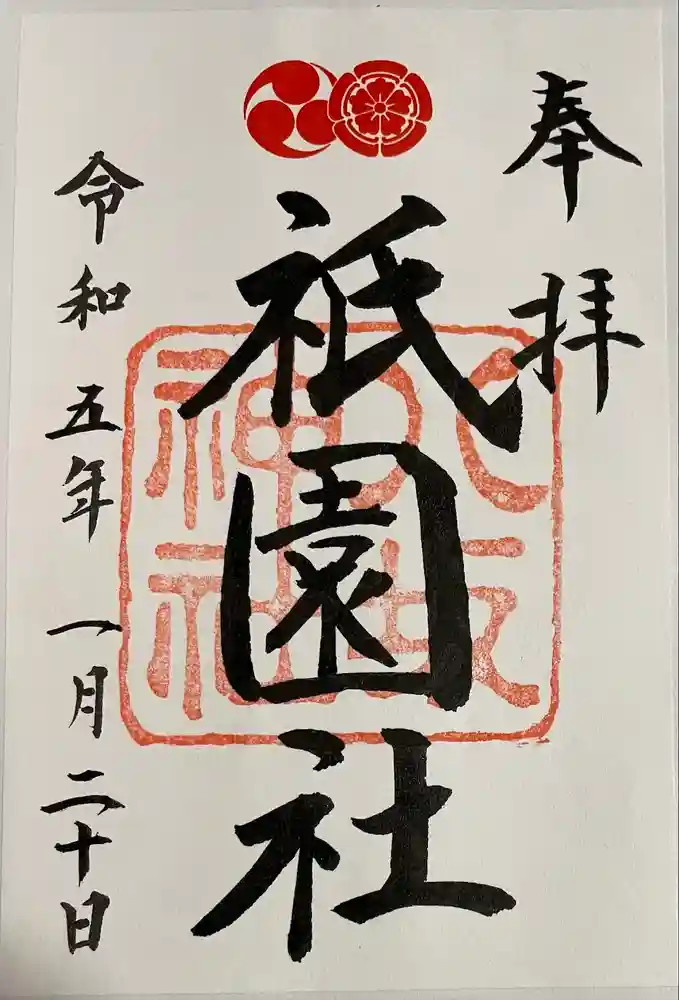 奉拝
八坂神社
祇園社
令和五年一月二十日